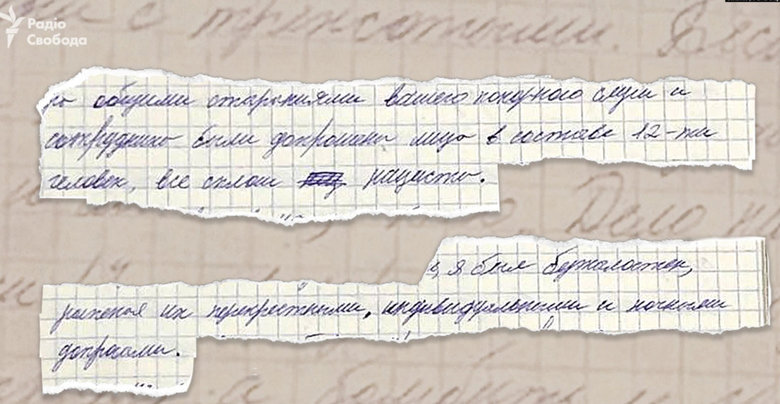 Радіо
Свобода
и с
общими стараниями вашего покорного слуги и
сотрудника были допрошены лица в составе 12-ти
человек, все сплош нацисты.
Дело
, я был безжалостен,
их перекрестными, индивидуальными и ночными
допросами.